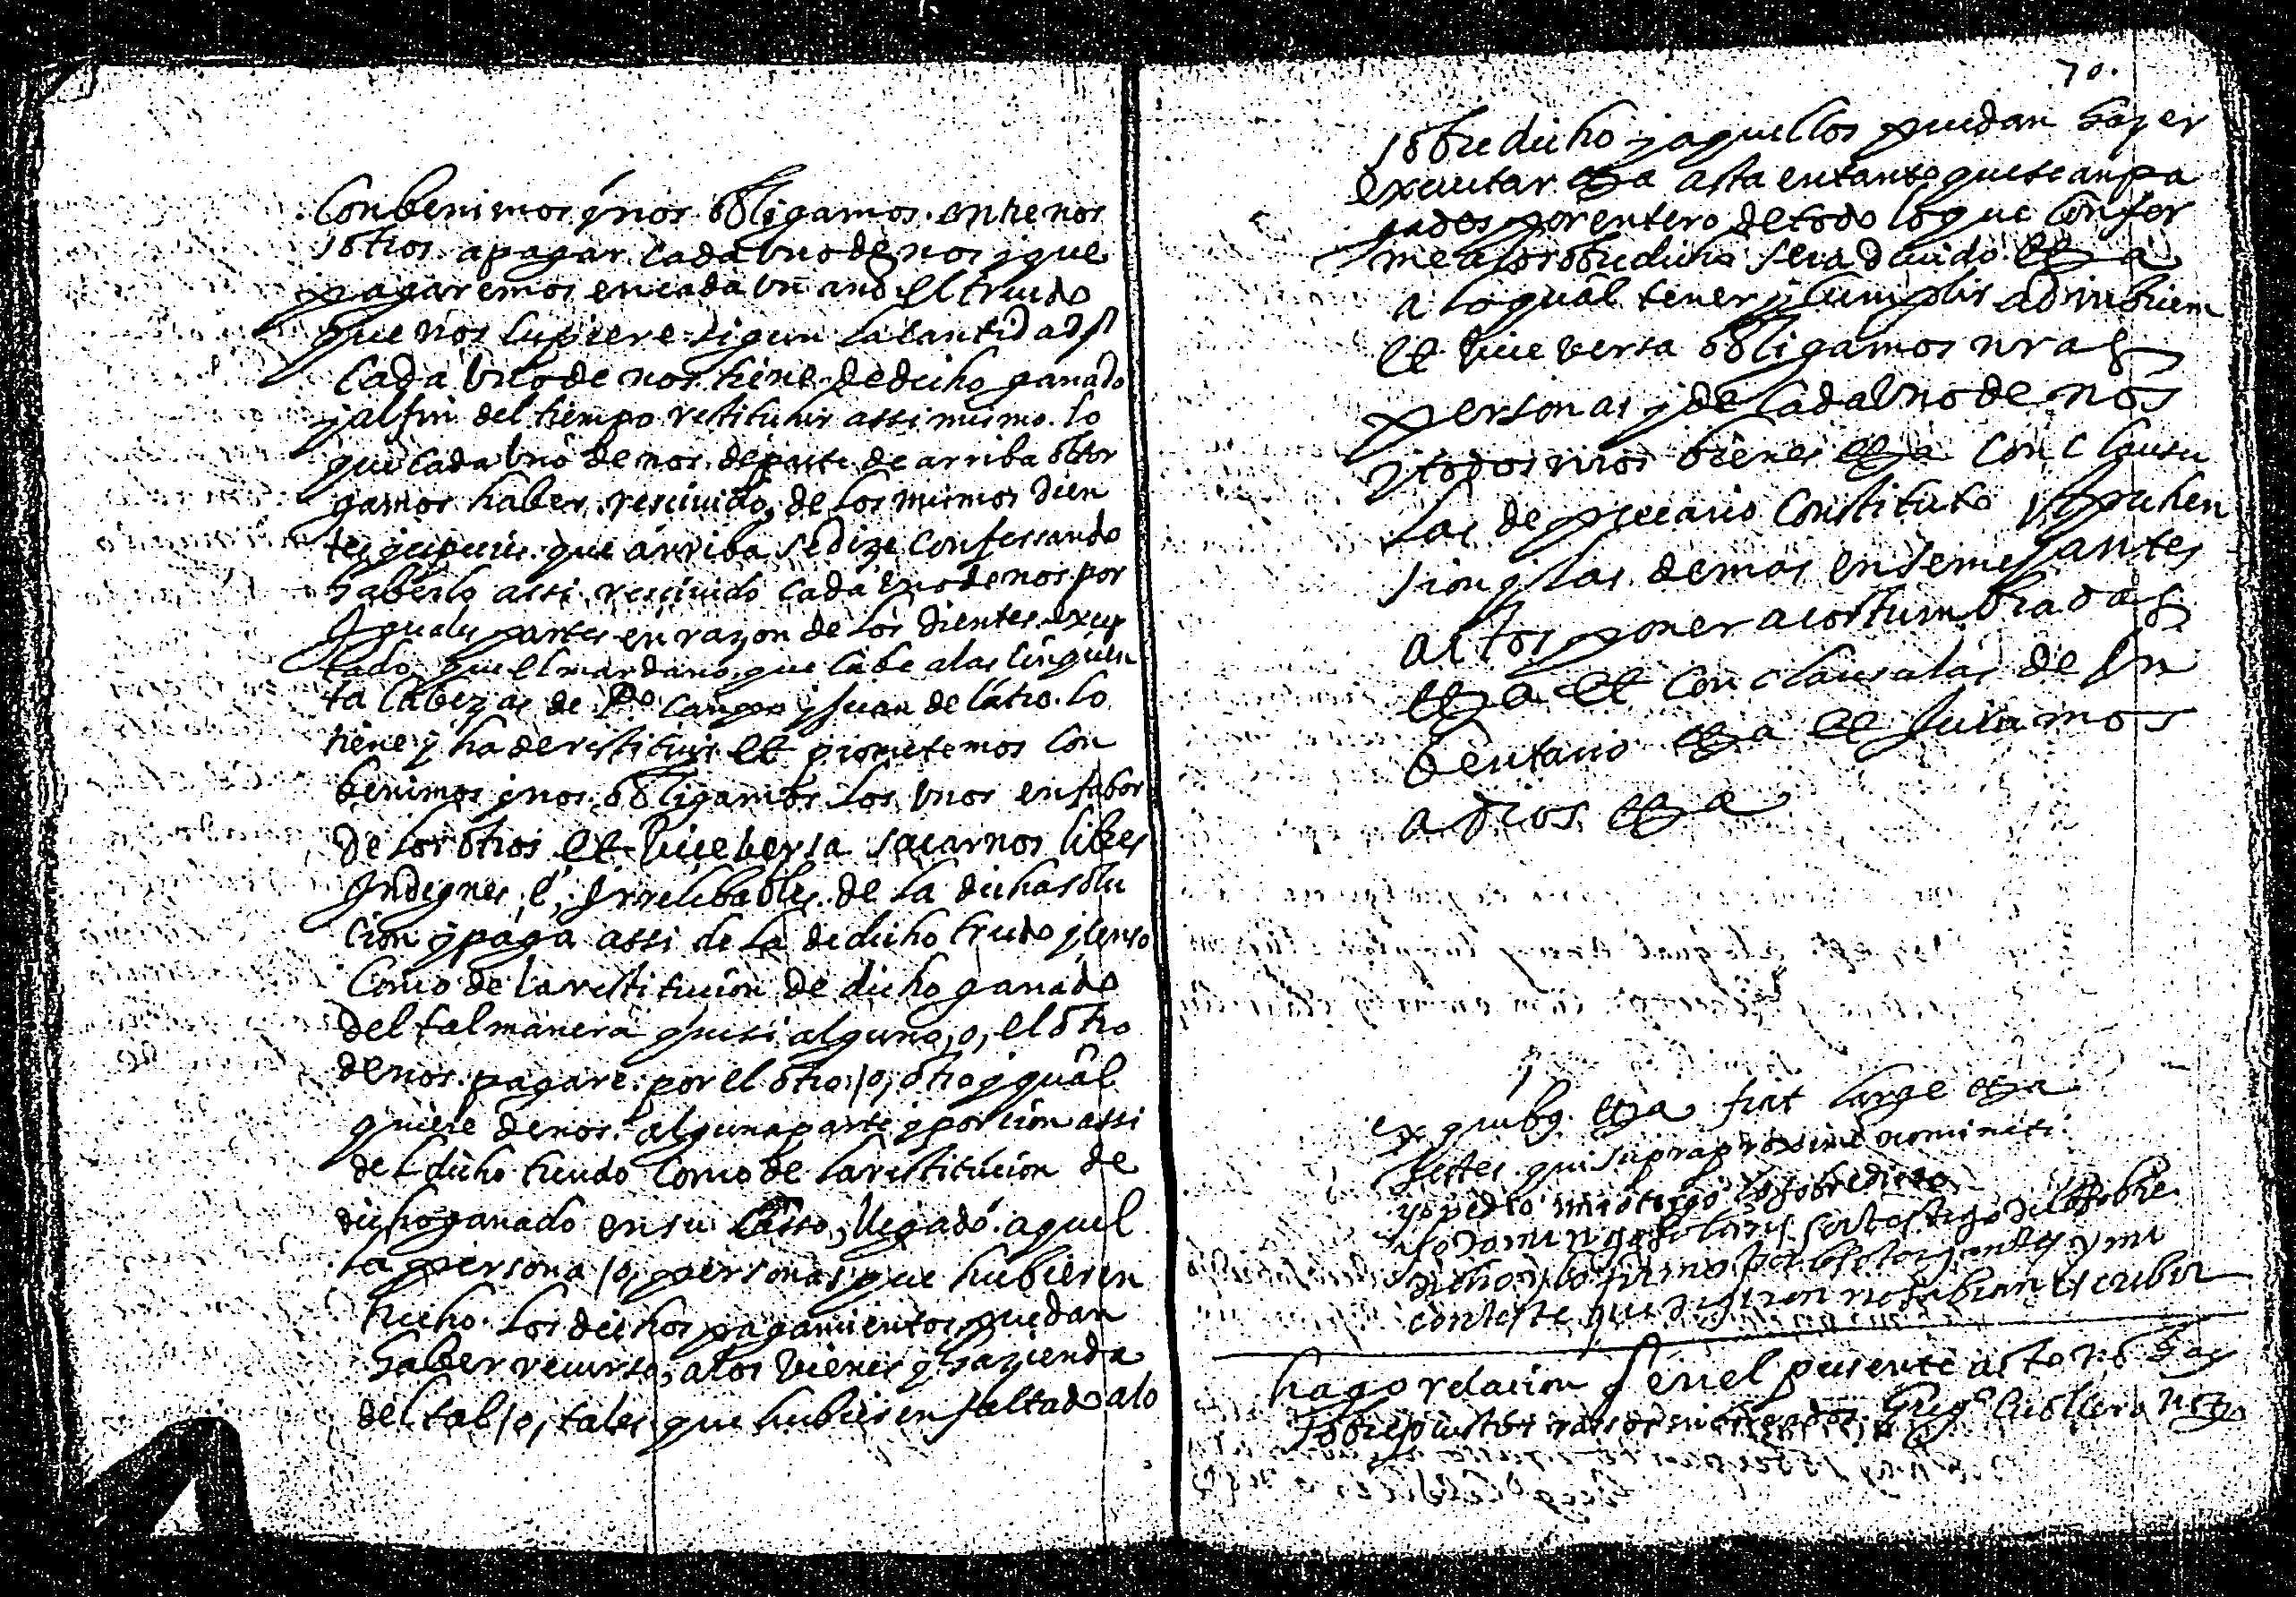 Conbenimos y nos obligamos entre nos
sotros a pagar cada uno de nos y que
pagaremos en cada un año el treudo
que nos cupiere sigun la cantidad q
cada uno de nos tiene de dicho ganado
y al fin del tiempo restituhir assi mismo lo
que cada uno de nos de parte de arriba otor
gamos haber rescivido de los mismos dien
tes y especies que arriba se dize confessando
haberlo assi rescivido cada uno de nos por
yguales partes en razon de los dientes excep
tado que el mardano que cabe a las cinquen
ta cabezas de Po y Juan de latro lo
tiene y ha de restituir et prometemos con
benimos y nos obligamos los unos en fabor
de los otros et vice versa sacarnos libres
Indegnes e, Irrelibables de la dicha solu
cion y paga assi de la de dicho treudo y censo
Como de la restitucion de dicho ganado
del tal manera que si alguno, o, el otro
de nos pagare por el otro, o, otro y qual
quiere de nos alguna parte y porcion assi
del dicho treudo como de la restitucion de
dicho ganado en su casso, llegado aquel
la persona, o, personas que hubieren
hecho los dichos pagamientos puedan
haber recurso, a los bienes y hazienda
del tal, o, tales que hubieren faltado a lo
70.
sobredicho y aquellos puedan hazer
executar etza asta en tanto que sean pa
gados por entero de todo lo que confor
me a lo sobredicho sera devido etza
a lo qual tener y cumplir ad invicem
et vice versa obligamos nras
personas y de cada uno de nos
y todos nros bienes etza con clausu
las de precario constituto apprehen
sion y las demas en semejantes
actos poner acostumbradas
etza et con clausulas de In
bentario etza et Juramos
a dios etza
ex quibus etza fiat large etza
testes qui supra proxime nominati
yo pedro mir otorgo lo sobredicho
yo domingo soy testigo de lo sobre
dicho y lo firmo por los otorgantes y mi
conteste que dixeron no sabian escribir
hago relacion q en el presente acto no hay
Greg.o Cubllero